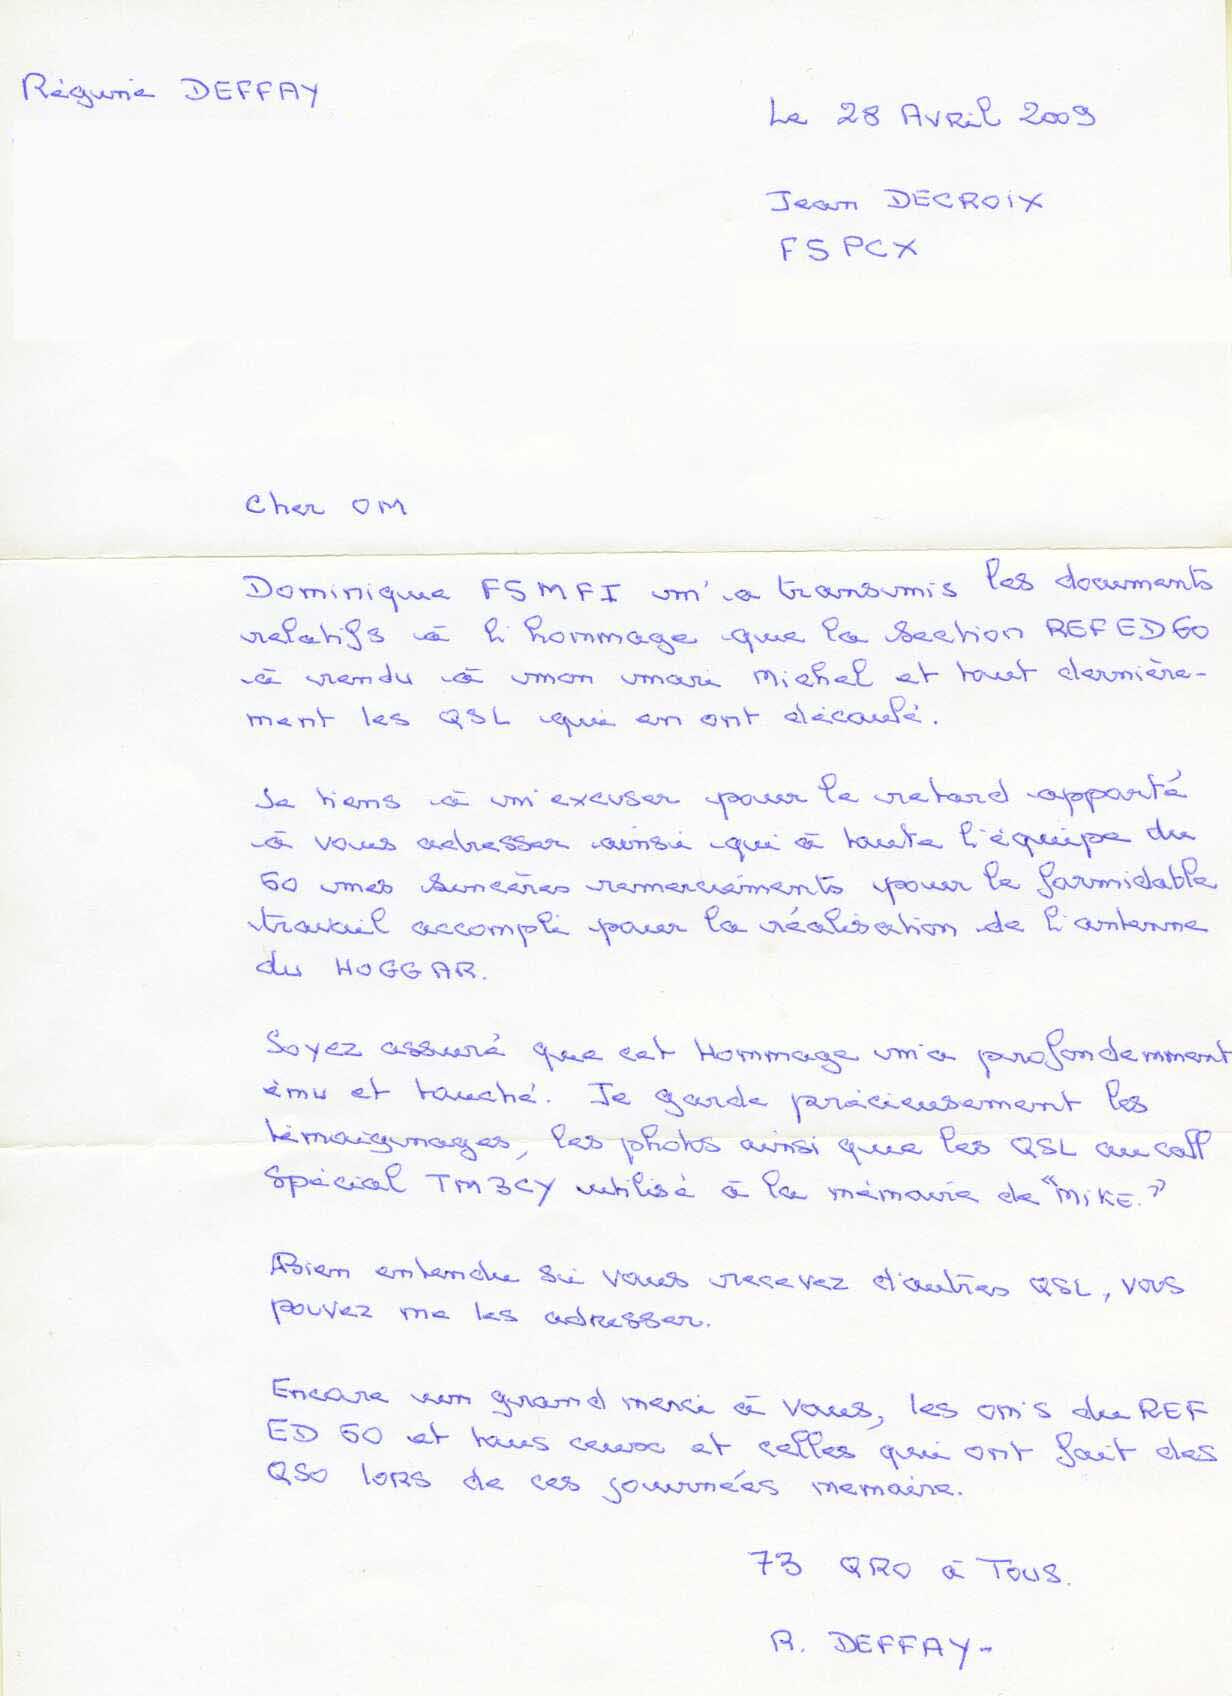 Régine DEFFAY
Le 28 Avril 2009
Jean DECROIX
F5PCX
Cher OM
Dominique F5MFI m'a transmis les documents
relatifs à l'hommage que la section REF ED60
à rendu à mon mari Michel et tout dernière-
ment les QSL qui en ont découlé.
Je tiens à m'excuser pour le retard apporté
à vous adresser ainsi qu'à toute l'équipe du
60 mes sincères remerciements pour le formidable
travail accompli pour la réalisation de l'antenne
du HOGGAR.
Soyez assuré que cet Hommage m'a profondemment
ému et touché. Je garde précieusement les
témoignages, les photos ainsi que les QSL au call
Spécial TM3CY utilisé à la mémoire de "MIKE."
Bien entendu si vous recevez d'autres QSL, vous
pouvez me les adresser.
Encore un grand merci à vous, les om's du REF
ED 60 et tous ceux et celles qui ont fait des
QSO lors de ces journées memoire.
73 QRO à Tous.
R. DEFFAY-